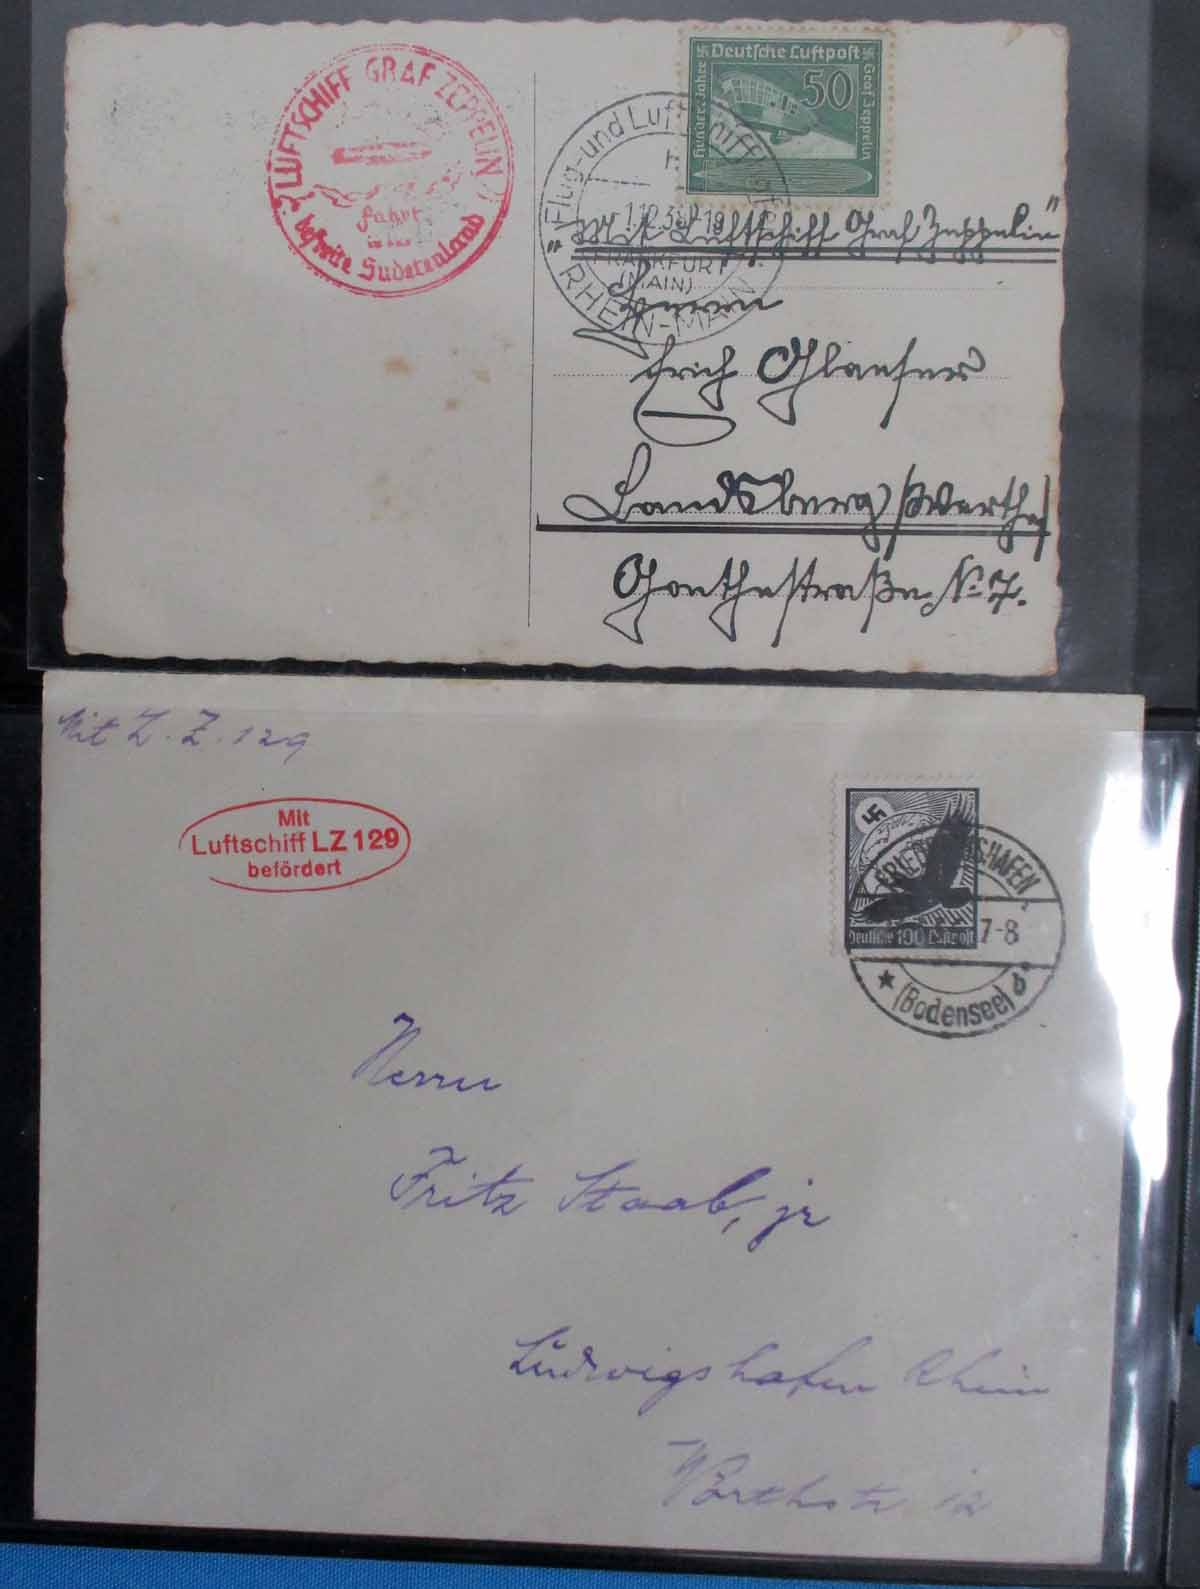 LUFTSCHIFF GRAF ZEPPELIN
Fahrt
in das
befreite Sudetenland
Deutsche Luftpost
50
Hundert Jahre
Graf Zeppelin
Flug- und Luftschiffhafen
FRANKFURT
(MAIN)
RHEIN-MAIN
"Mit Luftschiff Graf Zeppelin"
Herrn
Erich
Landsberg/Warthe/
Goethestraße N. 7.
Mit L.Z. 129
Mit
Luftschiff LZ 129
befördert
Deutsche 100 Luftpost
FRIEDRICHSHAFEN
7-8
(Bodensee) d
Herrn
Fritz Staab, jr
Ludwigshafen Rhein
Wörthstr 12